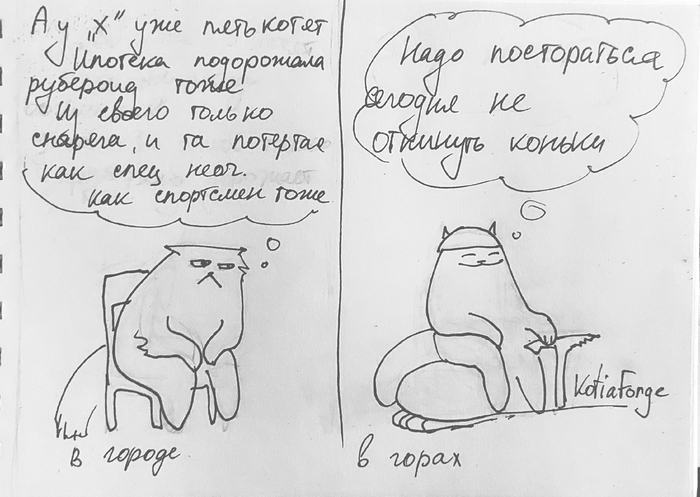 А у „Х" уже пять котят
Ипотека подорожала
рубероид тоже
Из своего только
снаряга, и та потертая
как спец неоч.
как спортсмен тоже
в городе
Надо постораться
сегодня не
откинуть коньки
KotiaForge
в горах